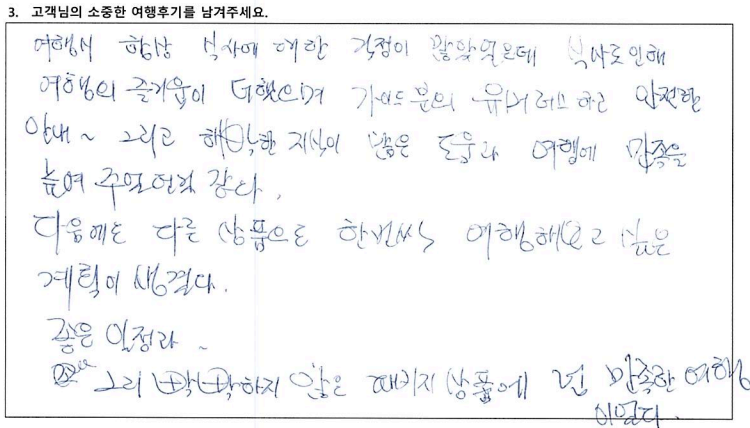 3. 고객님의 소중한 여행후기를 남겨주세요.
여행시 항상 식사에 대한 걱정이 많았었는데 식사로 인해
여행의 즐거움이 더했으며 가이드 분의 유머러스하고 안전한
안내~ 그리고 해박한 지식이 많은 도움과 여행에 만족을
높여 주었던것 같다.
다음에도 다른 상품으로 한번씩 여행해보고 싶은
계획이 생겼다.
좋은 일정과 ~
그리 빡빡하지 않은 패키지 상품에 넘 만족한 여행
이었다.